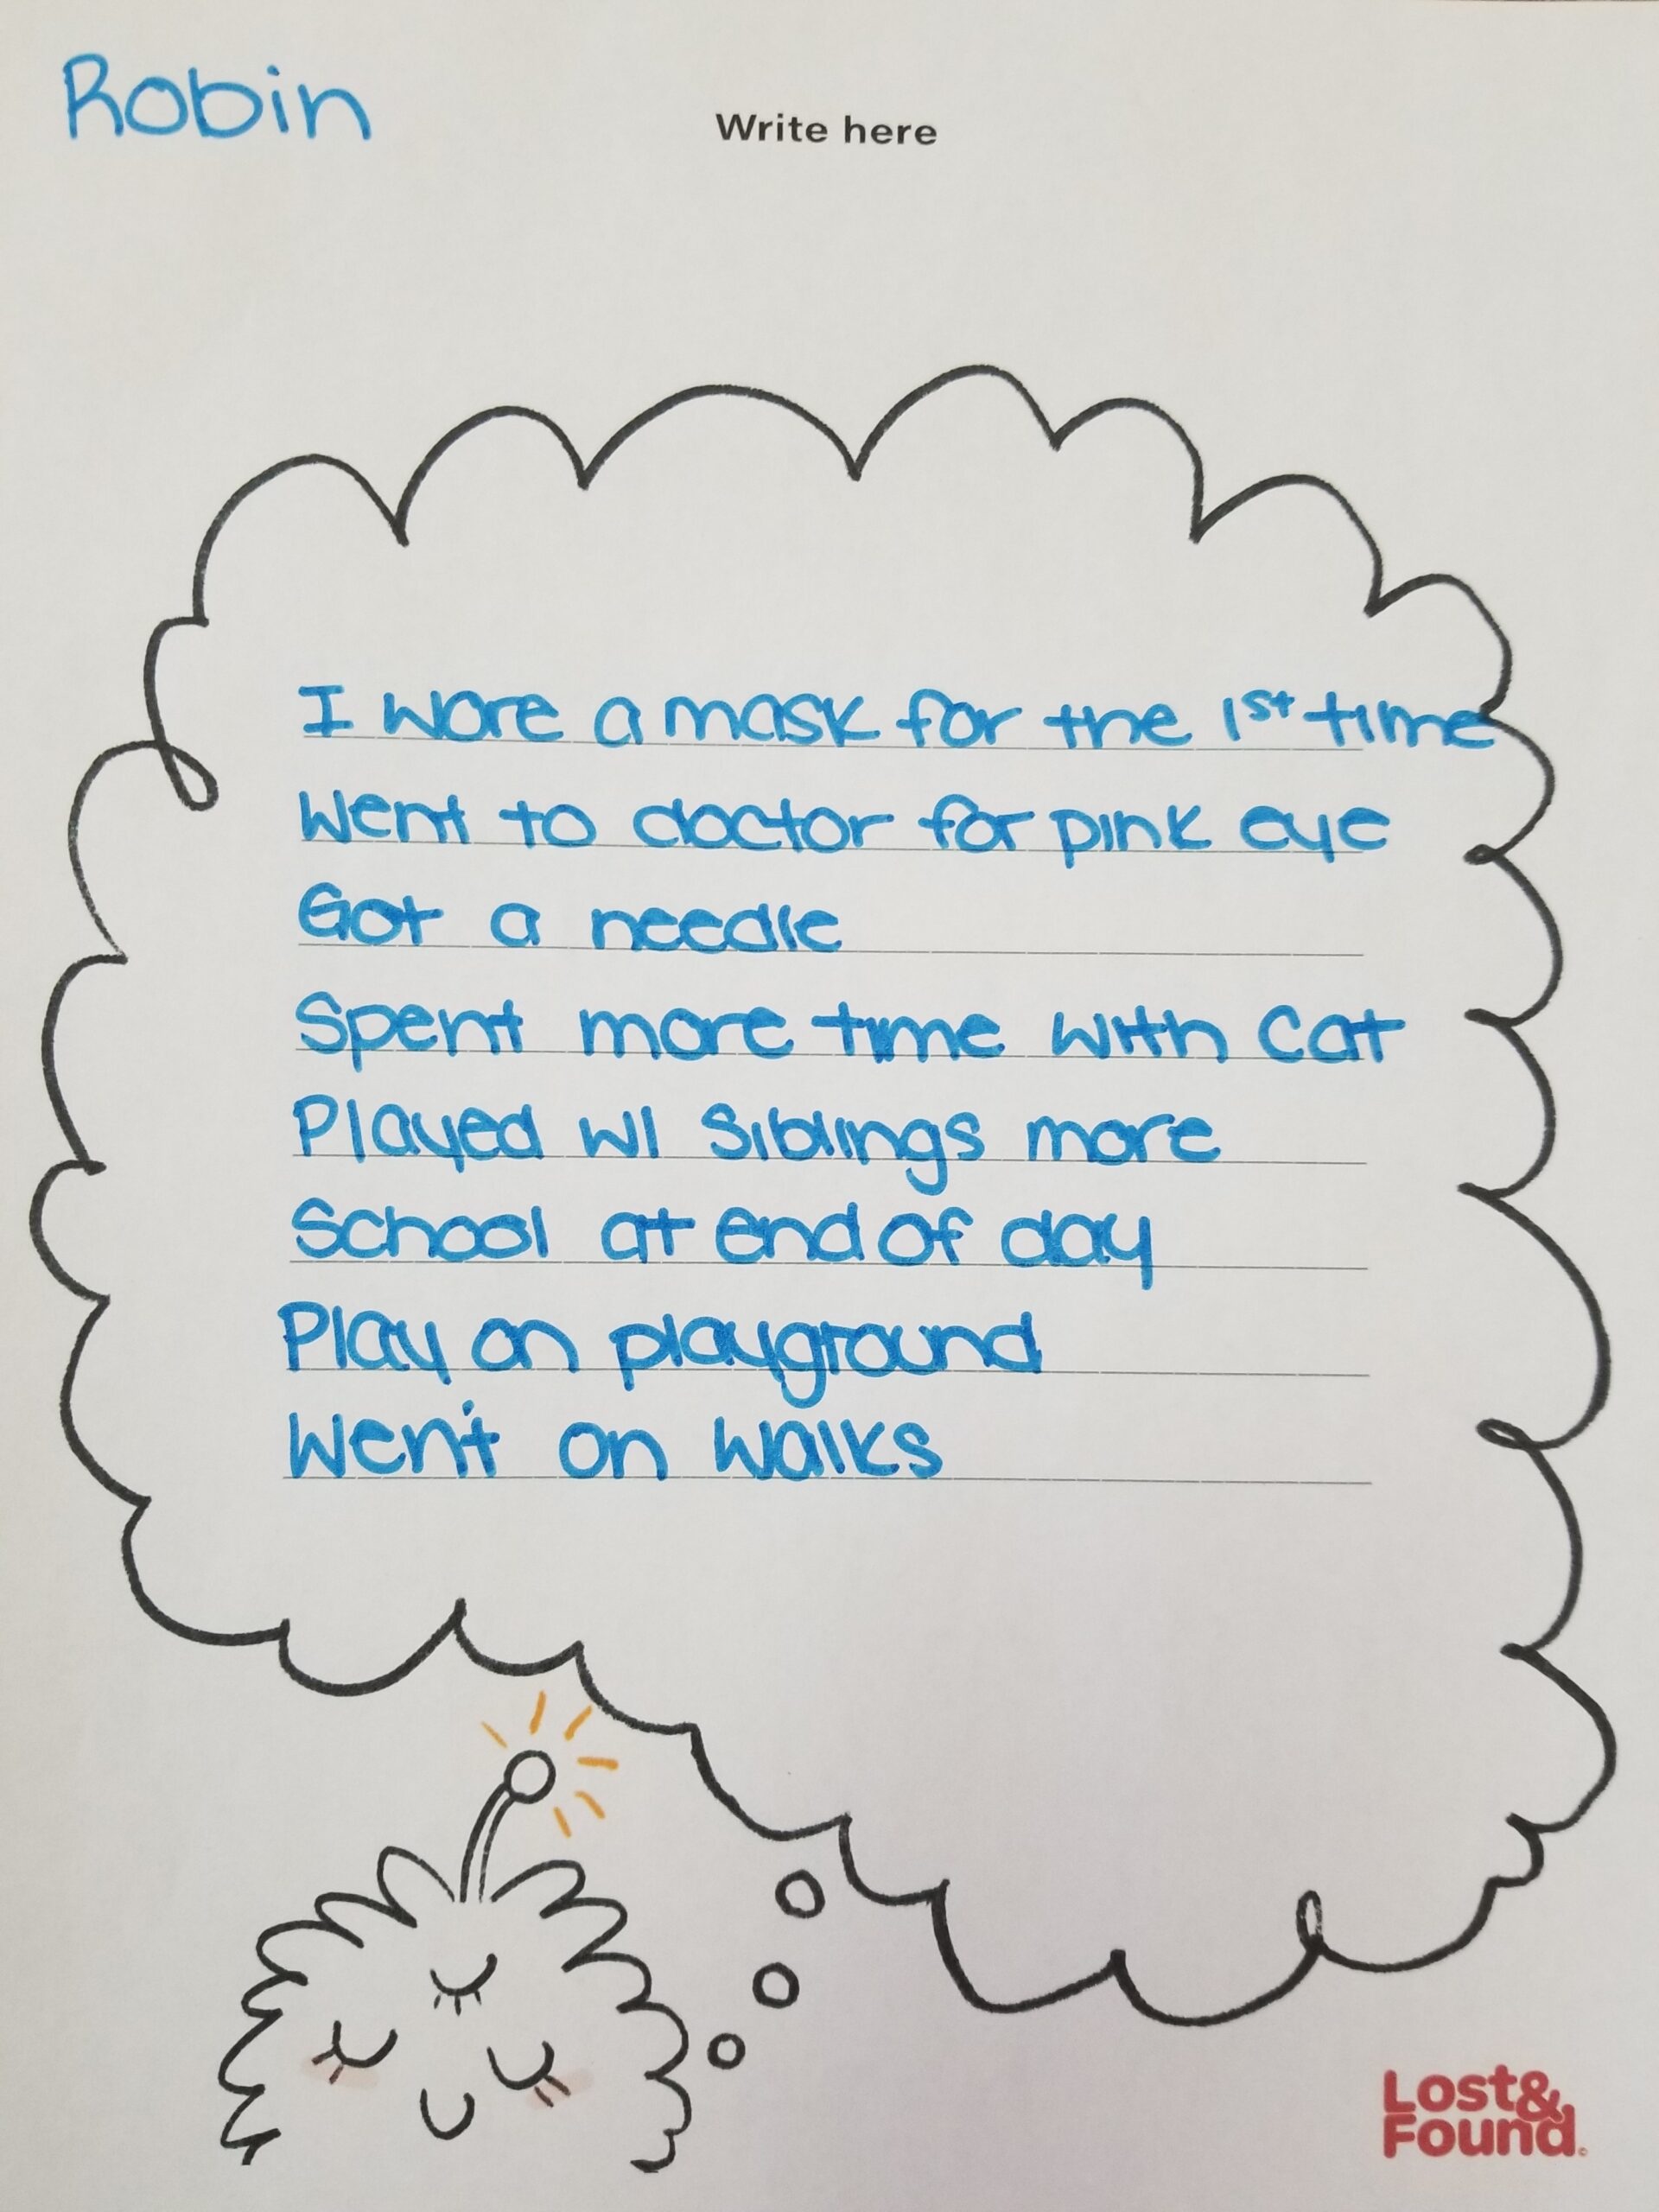 Robin
Write here
I wore a mask for the 1st time
Went to doctor for pink eye
Got a needle
Spent more time with cat
Played w/ siblings more
School at end of day
Play on playground
Went on walks
Lost&
Found©